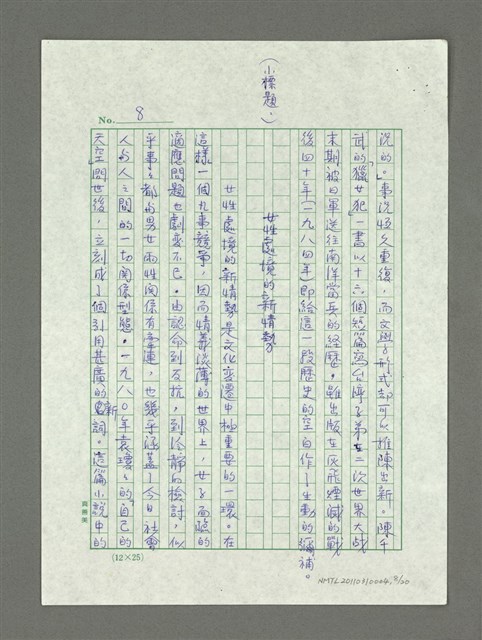 No. 8
(小標題:)
說的。」事況恆久重複,而文學形式却可以推陳出新。陳千
武的「獵女犯」一書以十六個短篇為台灣子弟在二次世界大戰
末期被日軍送往南洋當兵的經歷。雖出版在灰飛煙滅的戰
後四十年(一九八四年)即給這一段歷史的空白作了生動的彌補。
女性處境的新情勢
女性處境的新情勢是文化變遷中極重要的一環。在
這樣一個凡事競爭,因而情義淡薄的世界上,女子面臨的
適應問題也劇變不已。由認命到反抗,到冷靜的檢討,似
乎事事都與男女兩性關係有牽連,也幾乎涵蓋了今日社會
人與人之間的一切關係型態。一九八○年袁瓊瓊的「自己的
天空」問世後,立刻成了個引用甚廣的新名詞。這篇小說中的
(12×25)
NMTL20110610004. 8/20